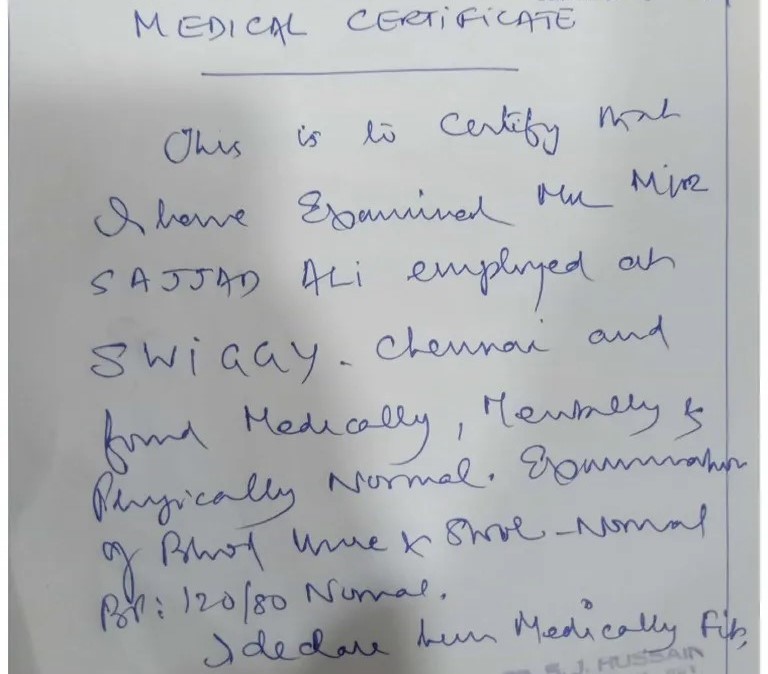 MEDICAL CERTIFICATE
This is to Certify that
I have Examined Mr Mirz
SAJJAD ALi employed at
SWiGGY - Chennai and
found Medically, Mentally &
Physically Normal. Examination
of Blood Urine & Stool - Normal
BP: 120/80 Normal.
I declare him Medically Fit,
S. J. HUSSAIN